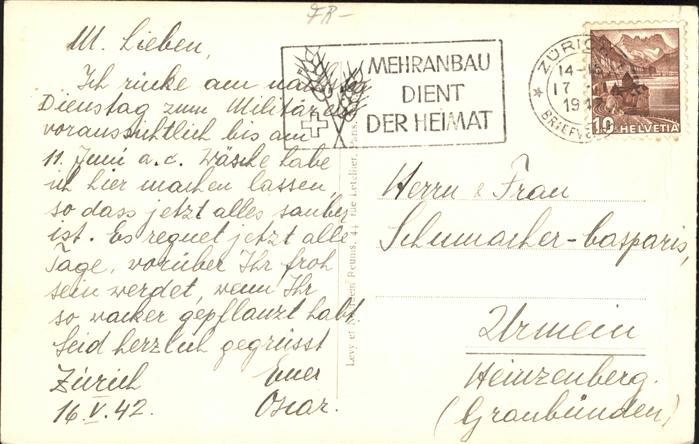 FR-
M. Lieben,
Ich rücke am
Dienstag zum Militär
voraussichtlich bis am
11. Juni a.c. Wäsche habe
ich hier machen lassen,
so dass jetzt alles sauber
ist. Es regnet jetzt alle
Tage, worüber Ihr froh
sein werdet, wenn Ihr
so wacker gepflanzt habt,
Seid herzlich gegrüsst
Zürich Euer
16.V.42. Oscar.
MEHRANBAU
DIENT
DER HEIMAT
ZÜRICH
14-
17
BRIEFV
10 HELVETIA
Levy et Neurdein Réunis, 44, rue Letellier, Paris
Herrn & Frau
Schumacher-Casparis,
Urmein
Heinzenberg.
(Graubünden)